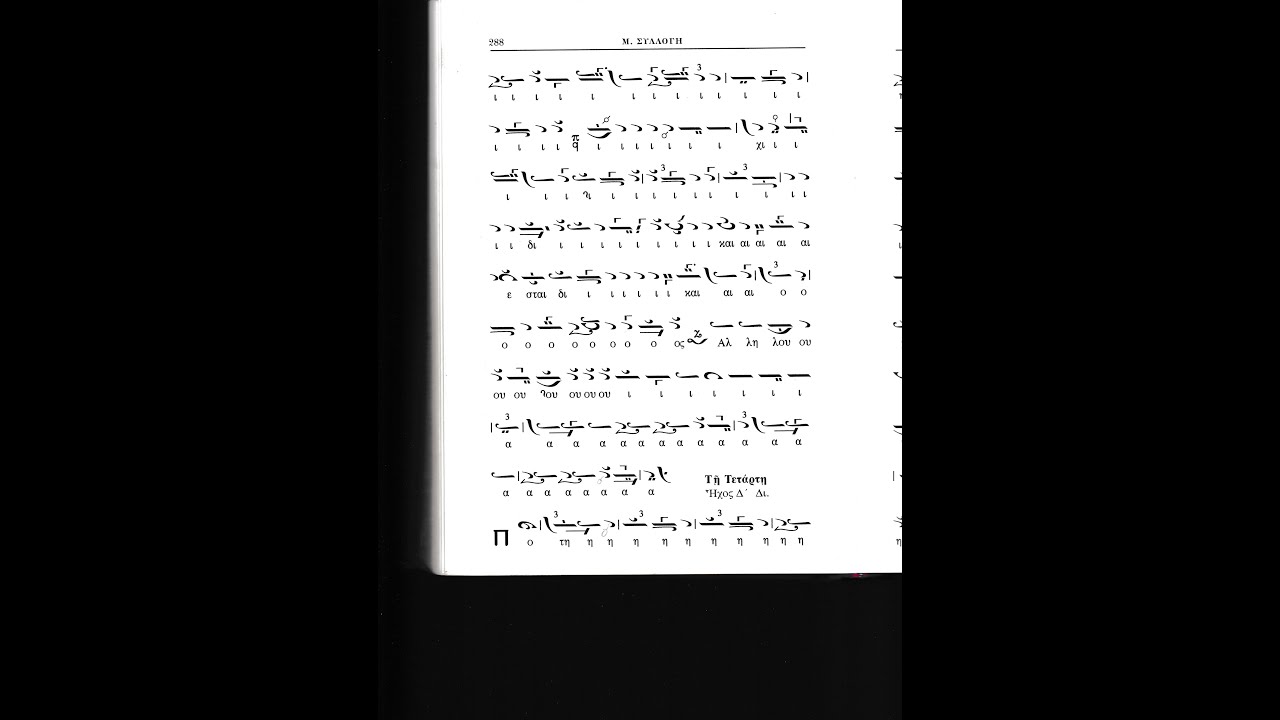 288 Μ. ΣΥΛΛΟΓΗ
ι ι ι ι ι ι ι ι ι ι ι ι ι
ι ι ι ι ι ι ι ι ι ι ι χι ι ι
ι ι ι ι ι ι ι ι ι ι ι ι ι ι
ι ι δι ι ι ι ι ι ι ι ι ι και αι αι αι αι
ε σται δι ι ι ι ι ι ι και αι αι ο ο
ο ο ο ο ο ο ο ο ος Αλ λη λου ου
ου ου ου ου ου ου ι ι ι ι ι ι ι
α α α α α α α α α α α α α
α α α α α α α α
Τῇ Τετάρτῃ
Ἦχος Δ΄ Δι.
Π ο τη η η η η η η η η η